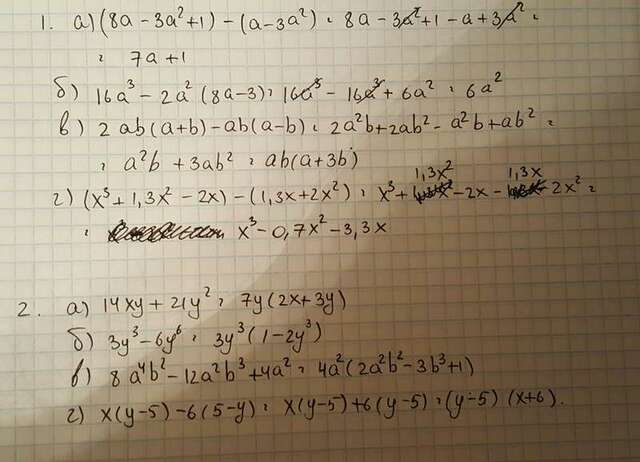 1. а) (8a - 3a²+1) - (a-3a²) = 8a - 3a²+1 - a + 3a² =
= 7a + 1
б) 16a³ - 2a² (8a-3) = 16a³ - 16a³ + 6a² = 6a²
в) 2 ab(a+b) - ab(a-b) = 2a²b + 2ab² - a²b + ab² =
= a²b + 3ab² = ab(a+3b)
1,3x² 1,3x
г) (x³ + 1,3x² - 2x) - (1,3x + 2x²) = x³ + - 2x - - 2x² =
= x³ - 0,7x² - 3,3x
2. а) 14xy + 21y² = 7y(2x+3y)
б) 3y³ - 6y⁶ = 3y³(1-2y³)
в) 8a⁴b² - 12a²b³ + 4a² = 4a²(2a²b² - 3b³ + 1)
г) x(y-5) - 6(5-y) = x(y-5) + 6(y-5) = (y-5) (x+6).